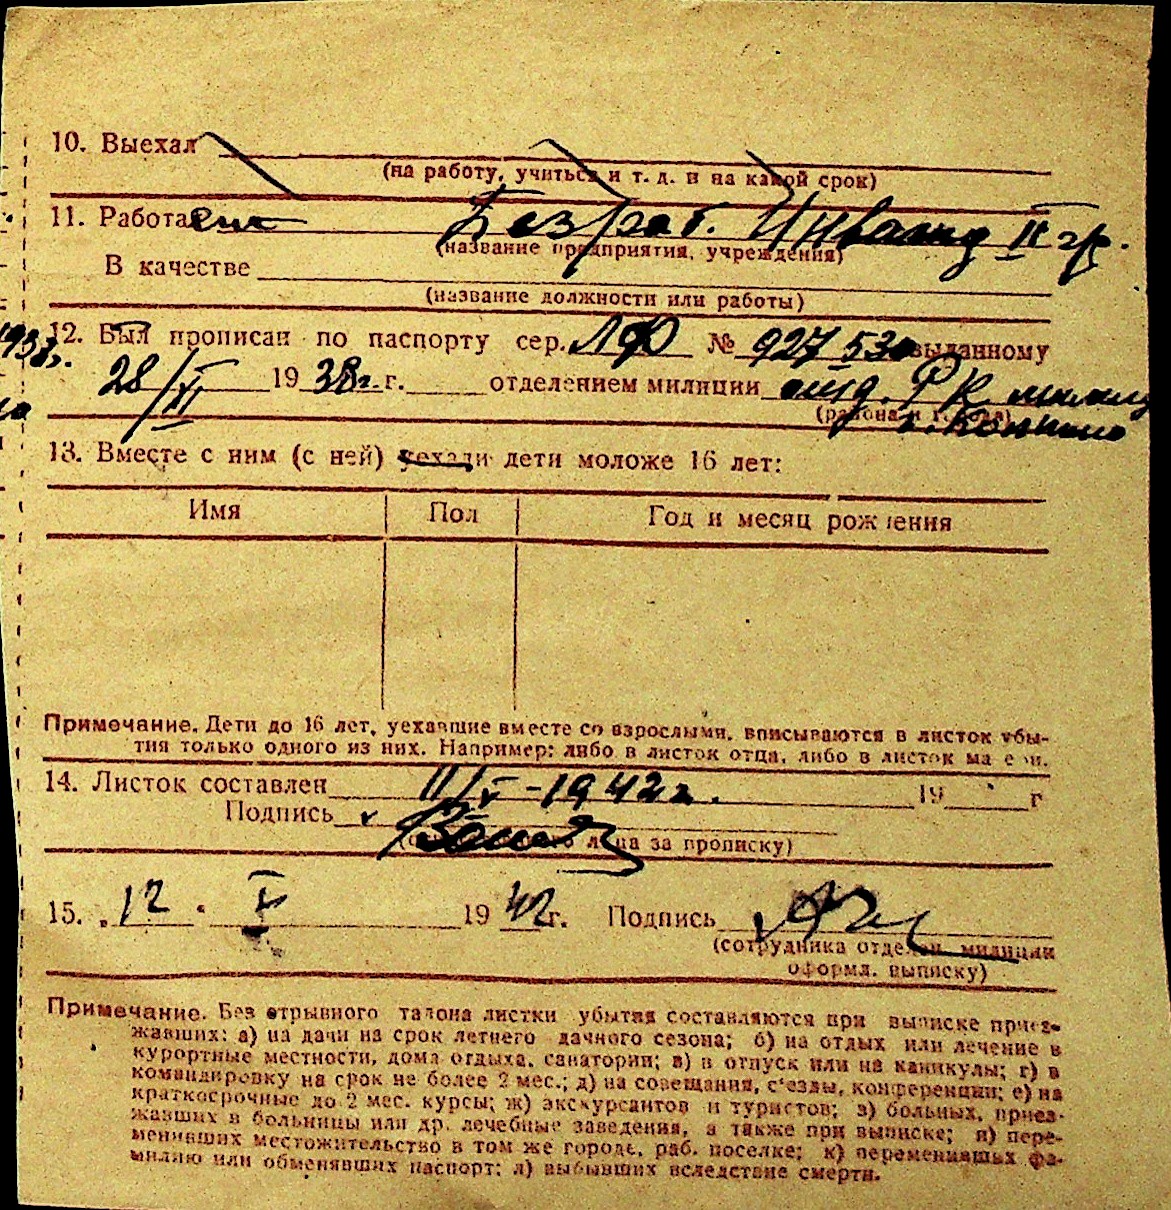 10. Выехал
(на работу, учиться и т. д. и на какой срок)
11. Работает Безраб. Инвалид II гр.
(название предприятия, учреждения)
В качестве
(название должности или работы)
12. Был прописан по паспорту сер. ЛФ № 927530 выданному
28/XI 1938г. г. отделением милиции отд. РК милиц
(района и города)
г. Колпино
13. Вместе с ним (с ней) уехали дети моложе 16 лет:
Имя Пол Год и месяц рождения
Примечание. Дети до 16 лет, уехавшие вместе со взрослыми, вписываются в листок убы-
тия только одного из них. Например: либо в листок отца, либо в листок матери.
14. Листок составлен 11/V-1942г. 19 г
Подпись
лица за прописку)
15. „12" V 1942г. Подпись
(сотрудника отделен. милиции
оформл. выписку)
Примечание. Без отрывного талона листки убытия составляются при выписке приез-
жавших: а) на дачи на срок летнего дачного сезона; б) на отдых или лечение в
курортные местности, дома отдыха, санатории; в) в отпуск или на каникулы; г) в
командировку на срок не более 2 мес.; д) на совещания, с'езды, конференции; е) на
краткосрочные до 2 мес. курсы; ж) экскурсантов и туристов; з) больных, приез-
жавших в больницы или др. лечебные заведения, а также при выписке; и) пере-
менивших местожительство в том же городе, раб. поселке; к) переменивших фа-
милию или обменявших паспорт; л) выбывших вследствие смерти.